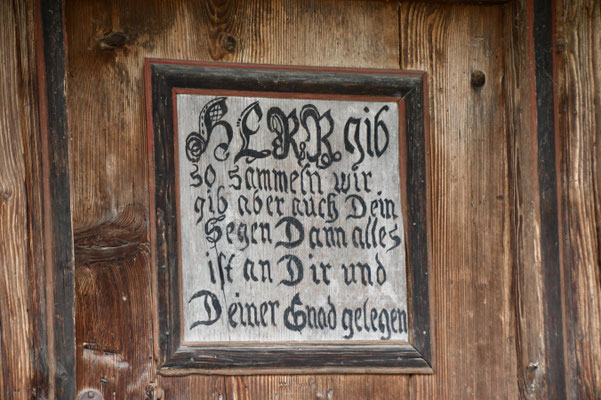 HERR gib
so sammeln wir
gib aber auch Dein
Segen Dann alles
ist an Dir und
Deiner Gnad gelegen